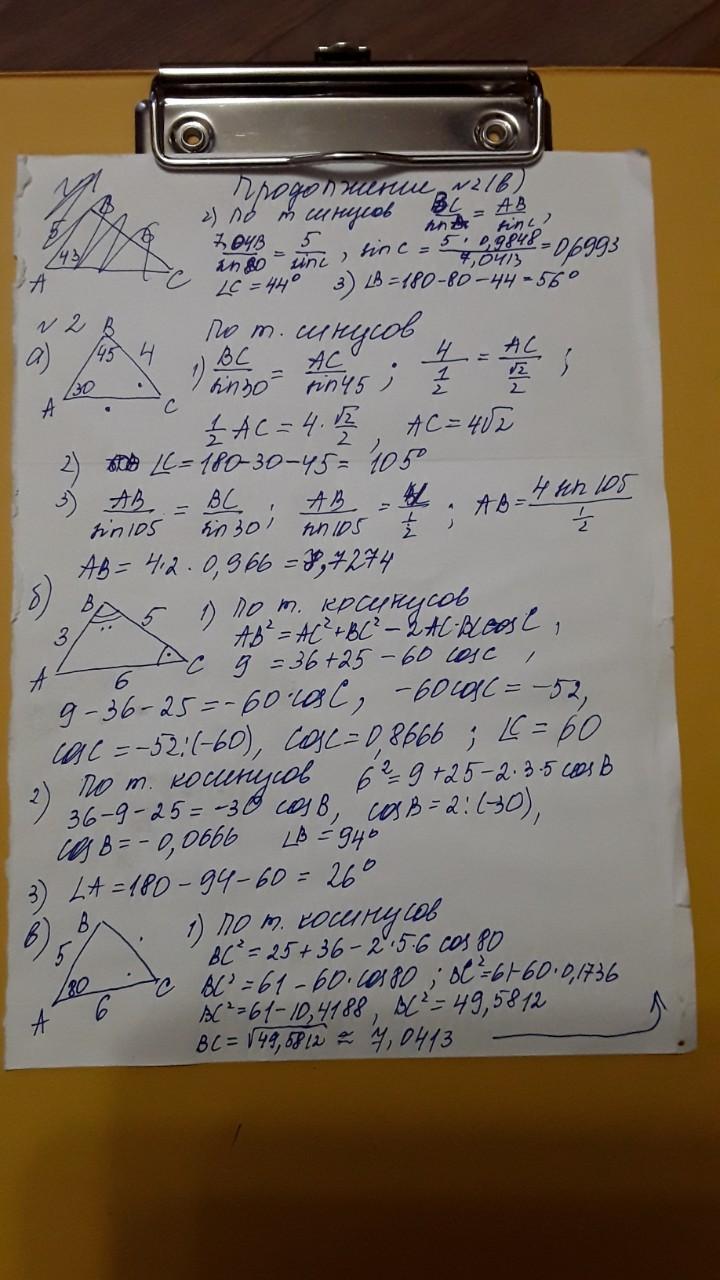 Продолжение №2(в)
5 B 6
A 43 C
2) По т синусов BC/sinA = AB/sinC,
7,04B/sin80 = 5/sinC, sinC = 5·0,9848/7,0413 = 0,6993
∠C = 44° 3) ∠B = 180-80-44 = 56°
№2
а) B 45 4 A 30 C
По т. синусов
1) BC/sin30 = AC/sin45; 4/(1/2) = AC/(√2/2);
1/2 AC = 4·√2/2, AC = 4√2
2) ∠C = 180-30-45 = 105°
3) AB/sin105 = BC/sin30; AB/sin105 = 4/(1/2); AB = 4 sin105/(1/2)
AB = 4·2·0,966 = 7,7274
б) B 3 5 A 6 C
1) По т. косинусов
AB² = AC² + BC² - 2AC·BC cosC,
9 = 36 + 25 - 60 cosC,
9 - 36 - 25 = -60·cosC, -60cosC = -52,
cosC = -52:(-60), cosC = 0,8666; ∠C = 60
2) По т. косинусов 6² = 9 + 25 - 2·3·5 cosB
36 - 9 - 25 = -30 cosB, cosB = 2:(-30),
cosB = -0,0666 ∠B = 94°
3) ∠A = 180 - 94 - 60 = 26°
в) B 5 A 80 6 C
1) По т. косинусов
BC² = 25 + 36 - 2·5·6 cos80
BC² = 61 - 60·cos80; BC² = 61-60·0,1736
BC² = 61-10,4188, BC² = 49,5812
BC = √49,5812 ≈ 7,0413